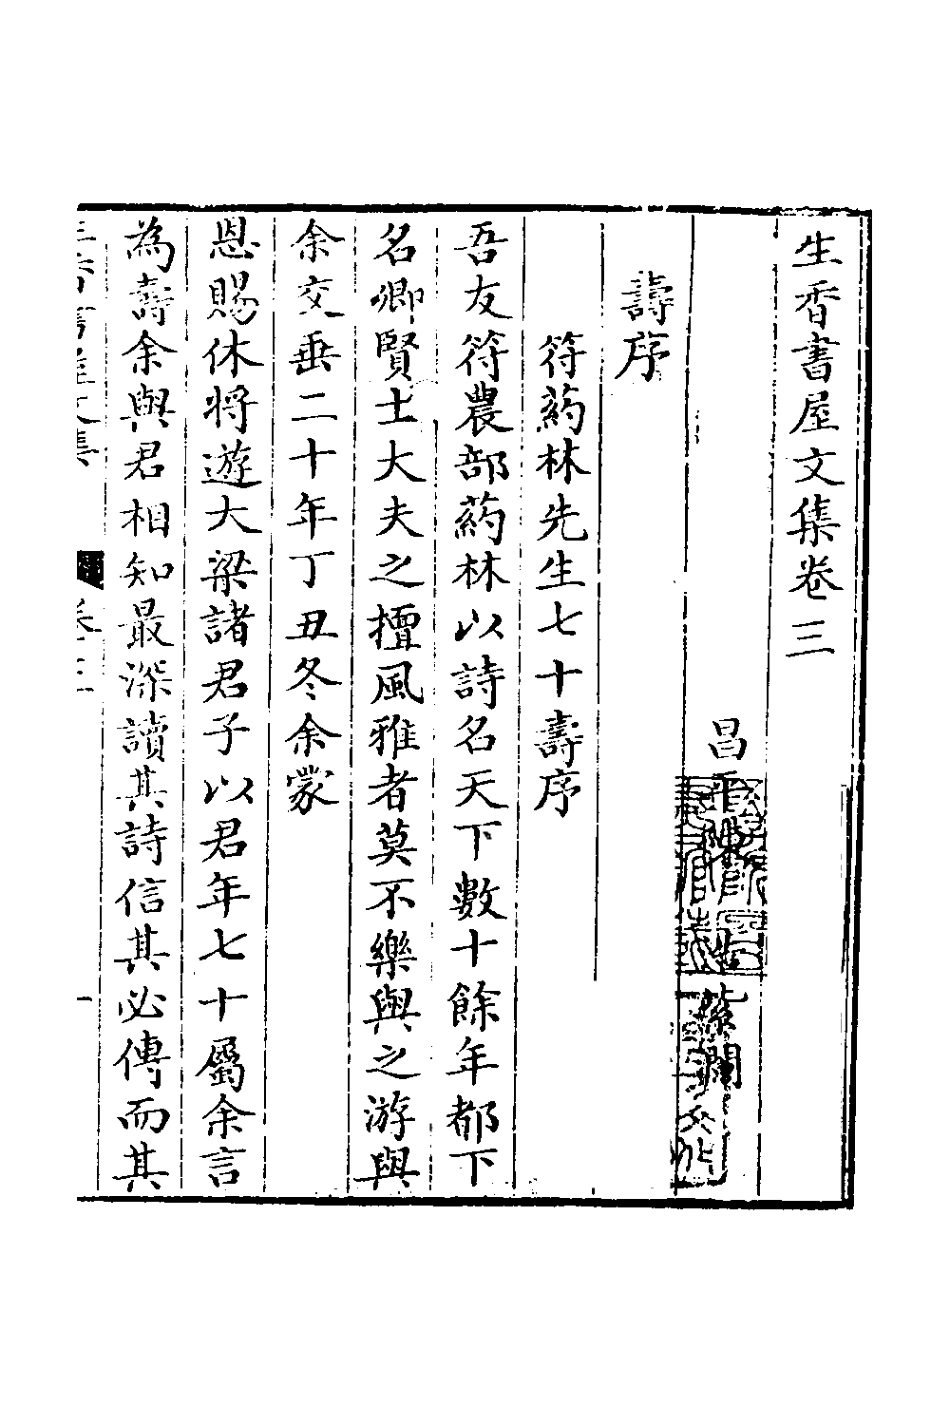 生香書屋文集卷三
昌平陳　紫瀾
壽序
符葯林先生七十壽序
吾友符農部葯林以詩名天下數十餘年都下
名卿賢士大夫之擅風雅者莫不樂與之游與
余交垂二十年丁丑冬余蒙
恩賜休將遊大梁諸君子以君年七十屬余言
為壽余與君相知最深讀其詩信其必傳而其
生香書屋文集　卷三　一